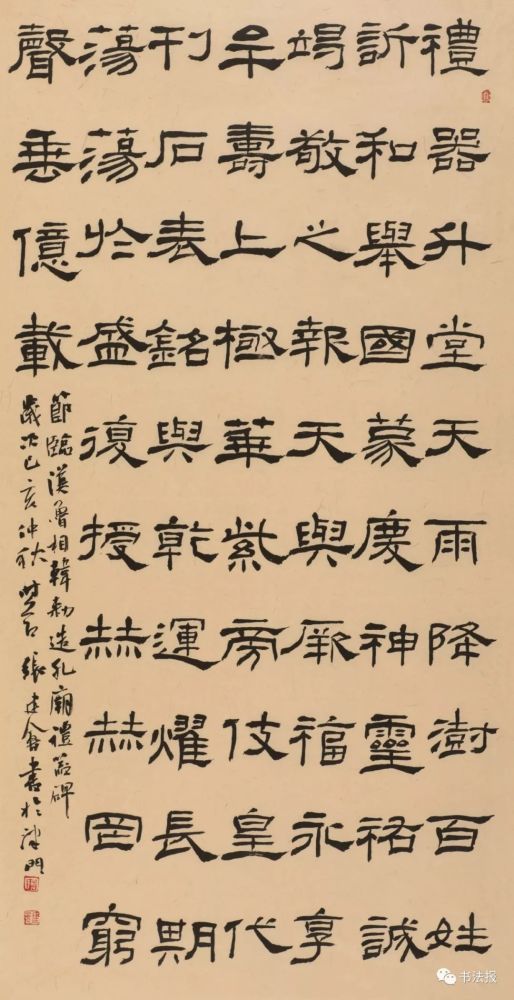 禮器升堂天雨降澍百姓
訢和舉國蒙慶神靈祐誠
竭敬之報天與厥福永享
牟壽上極華紫旁伎皇代
刊石表銘與乾運燿長期
蕩蕩於盛復授赫赫罔窮
聲垂億載
節臨漢魯相韓勅造孔廟禮器碑
歲次己亥仲秋張建會書於津門
书法报